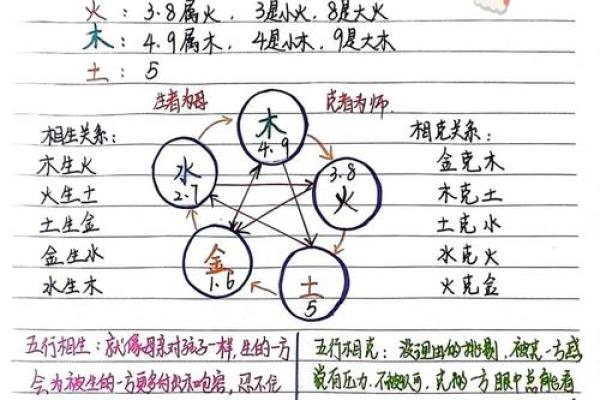 火：3.8属火，3是小火，8是大火
木：4.9属木，4是小木，9是大木
土：5
生者为母
克者为师.
相生关系：
木生火
火生土
土生金
金生水
水生木
木
4.9
水
2.7
3.8
火
金
1.6
土
5
相克关系：
金克木
木克土
土克水
水克火
火克金
五行相生：就像母亲对孩子一样,生的一方
会为被生的一方更多付出不
五行相克：没理由的挑剔，被克一方感
觉有压力.不被认可，克的一方眼中总能看